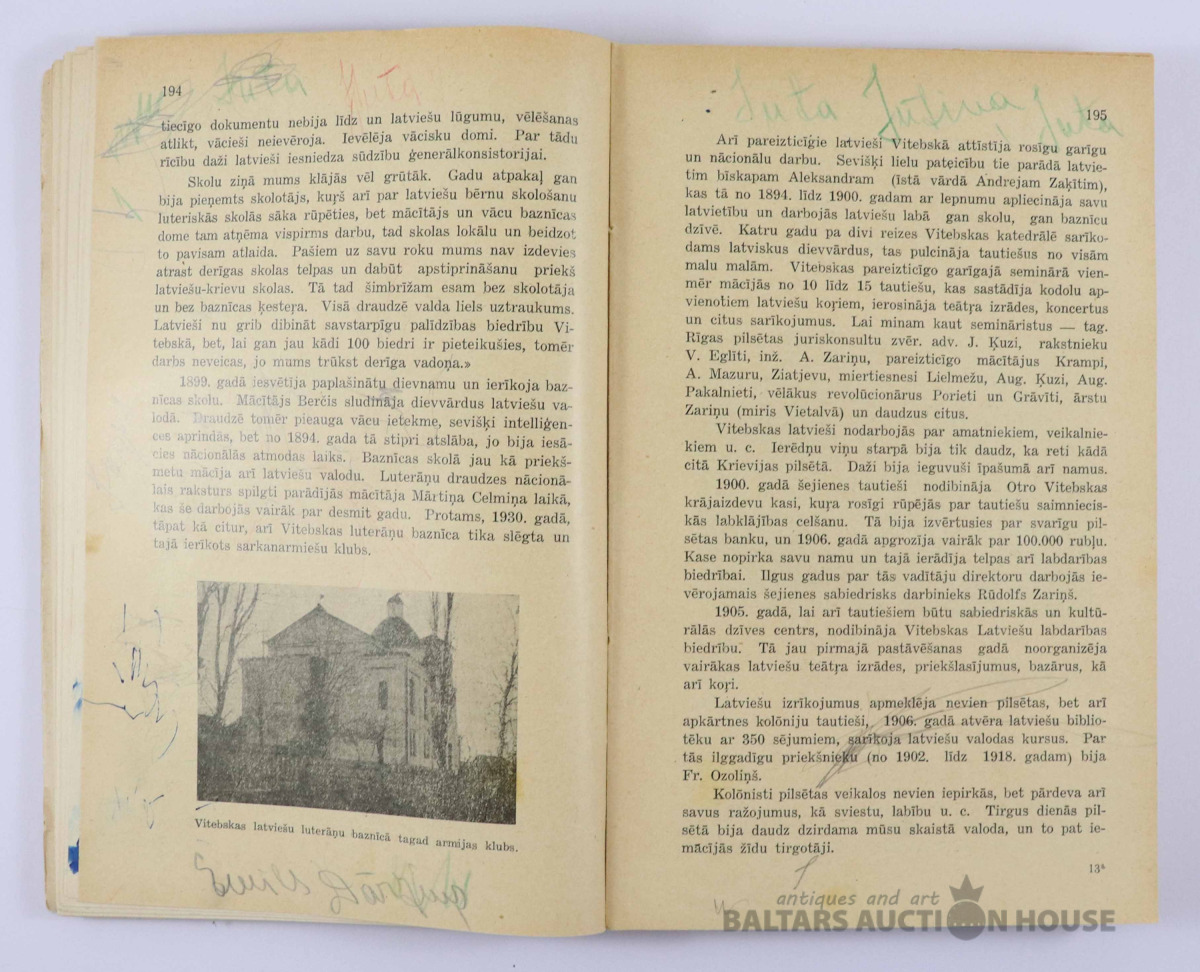 194
Juta Juta
tiecīgo dokumentu nebija līdz un latviešu lūgumu, vēlēšanas
atlikt, vācieši neievēroja. Ievēlēja vācisku domi. Par tādu
rīcību daži latvieši iesniedza sūdzību ģenerālkonsistorijai.
Skolu ziņā mums klājās vēl grūtāk. Gadu atpakaļ gan
bija pieņemts skolotājs, kuŗš arī par latviešu bērnu skološanu
luteriskās skolās sāka rūpēties, bet mācītājs un vācu baznīcas
dome tam atņēma vispirms darbu, tad skolas lokālu un beidzot
to pavisam atlaida. Pašiem uz savu roku mums nav izdevies
atrast derīgas skolas telpas un dabūt apstiprināšanu priekš
latviešu-krievu skolas. Tā tad šimbrīžam esam bez skolotāja
un bez baznīcas ķesteŗa. Visā draudzē valda liels uztraukums.
Latvieši nu grib dibināt savstarpīgu palīdzības biedrību Vi-
tebskā, bet, lai gan jau kādi 100 biedri ir pieteikušies, tomēr
darbs neveicas, jo mums trūkst derīga vadoņa.»
1899. gadā iesvētīja paplašinātu dievnamu un ierīkoja baz-
nīcas skolu. Mācītājs Berčis sludināja dievvārdus latviešu va-
lodā. Draudzē tomēr pieauga vācu ietekme, sevišķi intelliģen-
ces aprindās, bet no 1894. gada tā stipri atslāba, jo bija iesā-
cies nācionālās atmodas laiks. Baznīcas skolā jau kā priekš-
metu mācīja arī latviešu valodu. Luterāņu draudzes nācionā-
lais raksturs spilgti parādījās mācītāja Mārtiņa Celmiņa laikā,
kas še darbojās vairāk par desmit gadu. Protams, 1930. gadā,
tāpat kā citur, arī Vitebskas luterāņu baznīca tika slēgta un
tajā ierīkots sarkanarmiešu klubs.
Vitebskas latviešu luterāņu baznīcā tagad armijas klubs.
Emils Dārziņš
Juta Jūtiņa, Juta
195
Arī pareizticīgie latvieši Vitebskā attīstīja rosīgu garīgu
un nācionālu darbu. Sevišķi lielu pateicību tie parādā latvie-
tim bīskapam Aleksandram (īstā vārdā Andrejam Zaķītim),
kas tā no 1894. līdz 1900. gadam ar lepnumu apliecināja savu
latvietību un darbojās latviešu labā gan skolu, gan baznīcu
dzīvē. Katru gadu pa divi reizes Vitebskas katedrālē sarīko-
dams latviskus dievvārdus, tas pulcināja tautiešus no visām
malu malām. Vitebskas pareizticīgo garīgajā seminārā vien-
mēr mācījās no 10 līdz 15 tautiešu, kas sastādīja kodolu ap-
vienotiem latviešu koŗiem, ierosināja teātŗa izrādes, koncertus
un citus sarīkojumus. Lai minam kaut semināristus — tag.
Rīgas pilsētas juriskonsultu zvēr. adv. J. Ķuzi, rakstnieku
V. Eglīti, inž. A. Zariņu, pareizticīgo mācītājus Krampi,
A. Mazuru, Ziatjevu, miertiesnesi Lielmežu, Aug. Ķuzi, Aug.
Pakalnieti, vēlākus revolūcionārus Porieti un Grāvīti, ārstu
Zariņu (miris Vietalvā) un daudzus citus.
Vitebskas latvieši nodarbojās par amatniekiem, veikalnie-
kiem u. c. Ierēdņu viņu starpā bija tik daudz, ka reti kādā
citā Krievijas pilsētā. Daži bija ieguvuši īpašumā arī namus.
1900. gadā šejienes tautieši nodibināja Otro Vitebskas
krājaizdevu kasi, kuŗa rosīgi rūpējās par tautiešu saimniecis-
kās labklājības celšanu. Tā bija izvērtusies par svarīgu pil-
sētas banku, un 1906. gadā apgrozīja vairāk par 100.000 rubļu.
Kase nopirka savu namu un tajā ierādīja telpas arī labdarības
biedrībai. Ilgus gadus par tās vadītāju direktoru darbojās ie-
vērojamais šejienes sabiedrisks darbinieks Rūdolfs Zariņš.
1905. gadā, lai arī tautiešiem būtu sabiedriskās un kultū-
rālās dzīves centrs, nodibināja Vitebskas Latviešu labdarības
biedrību. Tā jau pirmajā pastāvēšanas gadā noorganizēja
vairākas latviešu teātŗa izrādes, priekšlasījumus, bazārus, kā
arī koŗi.
Latviešu izrīkojumus apmeklēja nevien pilsētas, bet arī
apkārtnes kolōniju tautieši, 1906. gadā atvēra latviešu biblio-
tēku ar 350 sējumiem, sarīkoja latviešu valodas kursus. Par
tās ilggadīgu priekšnieku (no 1902. līdz 1918. gadam) bija
Fr. Ozoliņš.
Kolōnisti pilsētas veikalos nevien iepirkās, bet pārdeva arī
savus ražojumus, kā sviestu, labību u. c. Tirgus dienās pil-
sētā bija daudz dzirdama mūsu skaistā valoda, un to pat ie-
mācījās žīdu tirgotāji.
13*
antiques and art
BALTARS AUCTION HOUSE